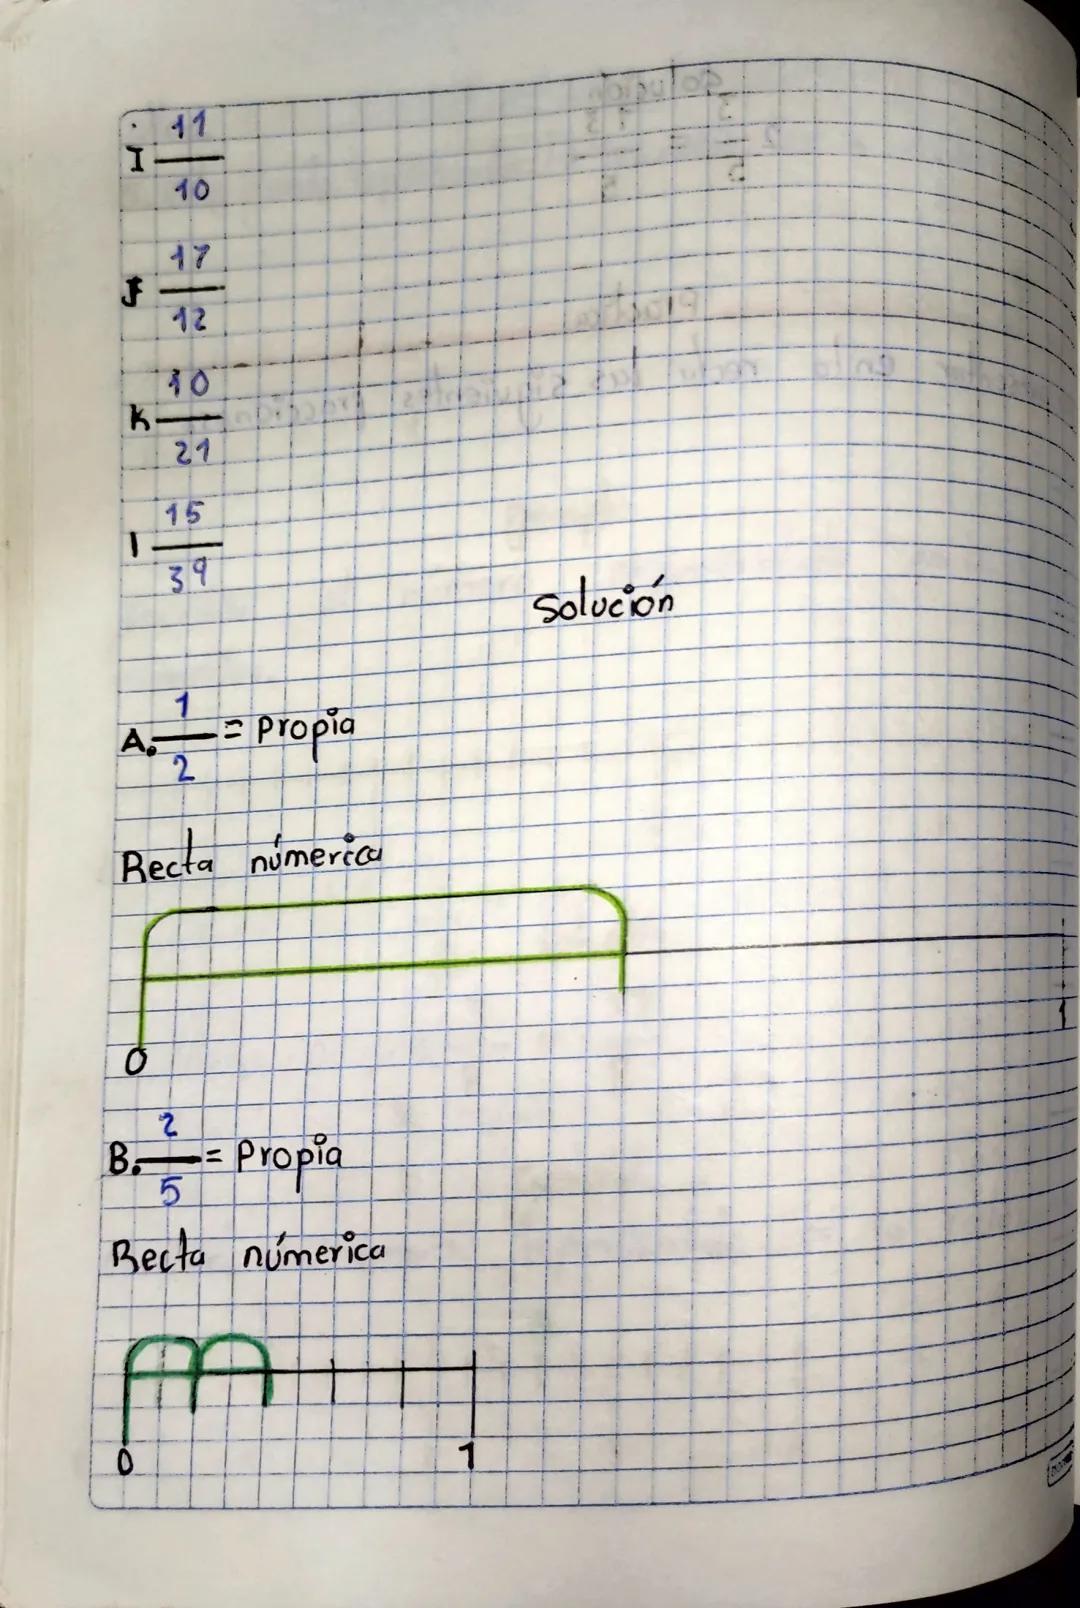 I 11/10
J 17/12
K 10/21
l 15/39
Solución
A. 1/2 = Propia
Recta númerica
0 1
B. 2/5 = Propia
Recta númerica
0 1